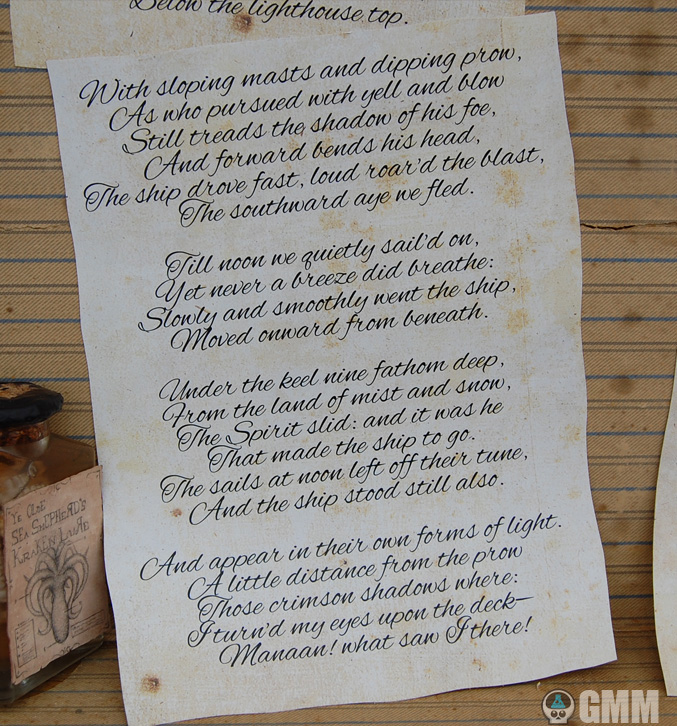 Below the lighthouse top.
With sloping masts and dipping prow,
As who pursued with yell and blow
Still treads the shadow of his foe,
And forward bends his head,
The ship drove fast, loud roar'd the blast,
The southward aye we fled.
Till noon we quietly sail'd on,
Yet never a breeze did breathe:
Slowly and smoothly went the ship,
Moved onward from beneath.
Under the keel nine fathom deep,
From the land of mist and snow,
The Spirit slid: and it was he
That made the ship to go.
The sails at noon left off their tune,
And the ship stood still also.
And appear in their own forms of light.
A little distance from the prow
Those crimson shadows where:
I turn'd my eyes upon the deck—
Manaan! what saw I there!
Ye Olde
Sea Shepherd's
Kraken Lure
GMM